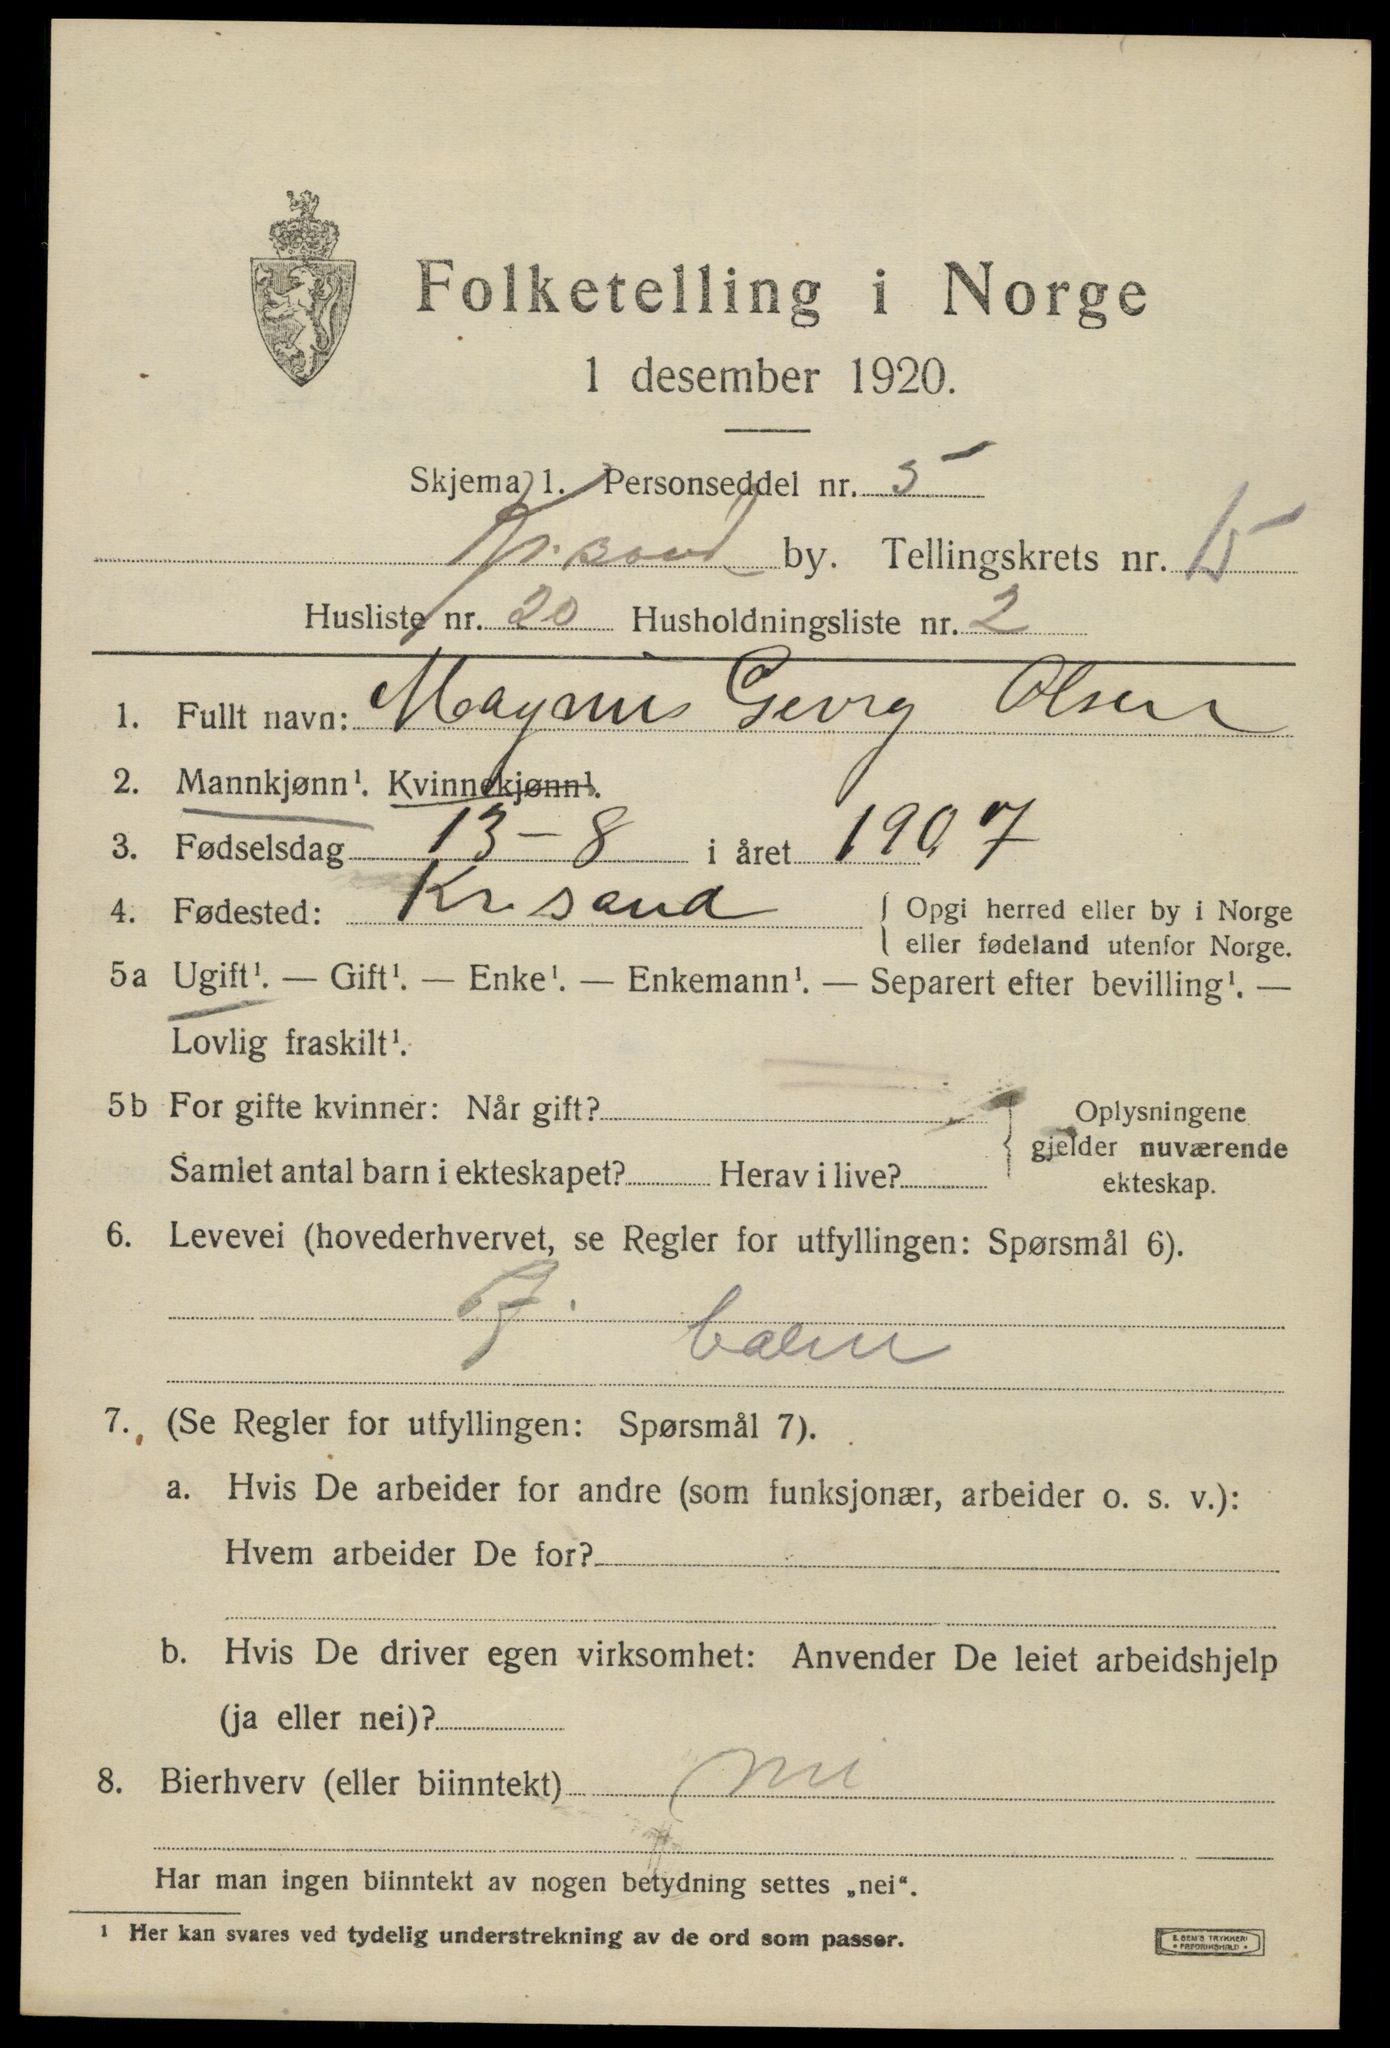 Folketelling i Norge
1 desember 1920.
Skjema 1. Personseddel nr. 5
Kr.sand by. Tellingskrets nr. 15
Husliste nr. 20 Husholdningsliste nr. 2
1. Fullt navn: Magnus Georg Olsen
2. Mannkjønn¹. Kvinnekjønn¹.
3. Fødselsdag 13-8 i året 1907
4. Fødested: Kr.sand { Opgi herred eller by i Norge
eller fødeland utenfor Norge.
5a Ugift¹. — Gift¹. — Enke¹. — Enkemann¹. — Separert efter bevilling¹. —
Lovlig fraskilt¹.
5b For gifte kvinner: Når gift? { Oplysningene
gjelder nuværende
Samlet antal barn i ekteskapet? Herav i live? ekteskap.
6. Levevei (hovederhvervet, se Regler for utfyllingen: Spørsmål 6).
7. (Se Regler for utfyllingen: Spørsmål 7).
a. Hvis De arbeider for andre (som funksjonær, arbeider o. s. v.):
Hvem arbeider De for?
b. Hvis De driver egen virksomhet: Anvender De leiet arbeidshjelp
(ja eller nei)?
8. Bierhverv (eller biinntekt) nei
Har man ingen biinntekt av nogen betydning settes „nei“.
¹ Her kan svares ved tydelig understrekning av de ord som passer.
E. SEM'S TRYKKERI
FREDRIKSHALD